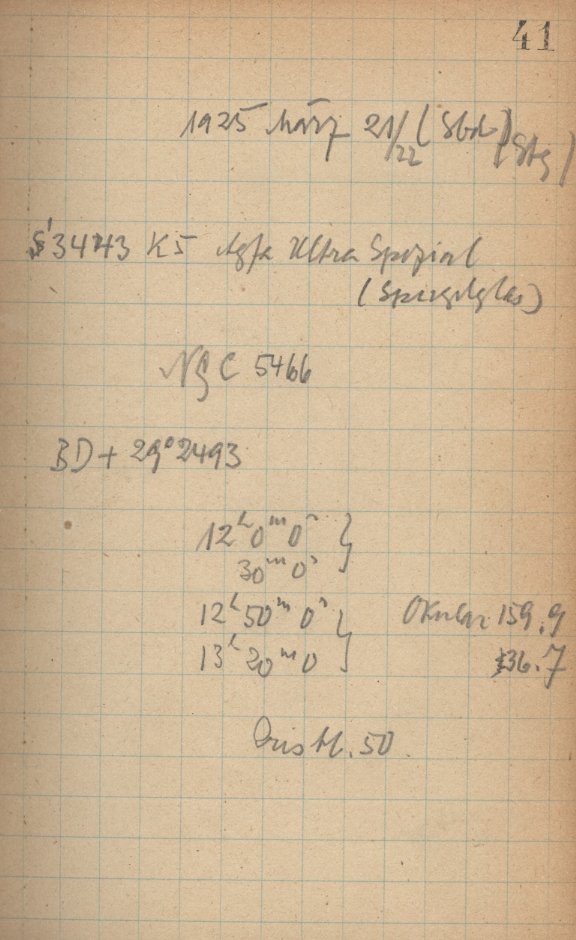 41
1925 März 21/22 (Sbd)
(Stg)
S'3443 K5 Agfa Ultra Spezial
(Spiegelglas)
NGC 5466
BD + 29° 2493
12ʰ 0ᵐ 0ˢ }
30ᵐ 0ˢ
12ʰ 50ᵐ 0ˢ } Okular 159.9
13ʰ 20ᵐ 0 36.7
50